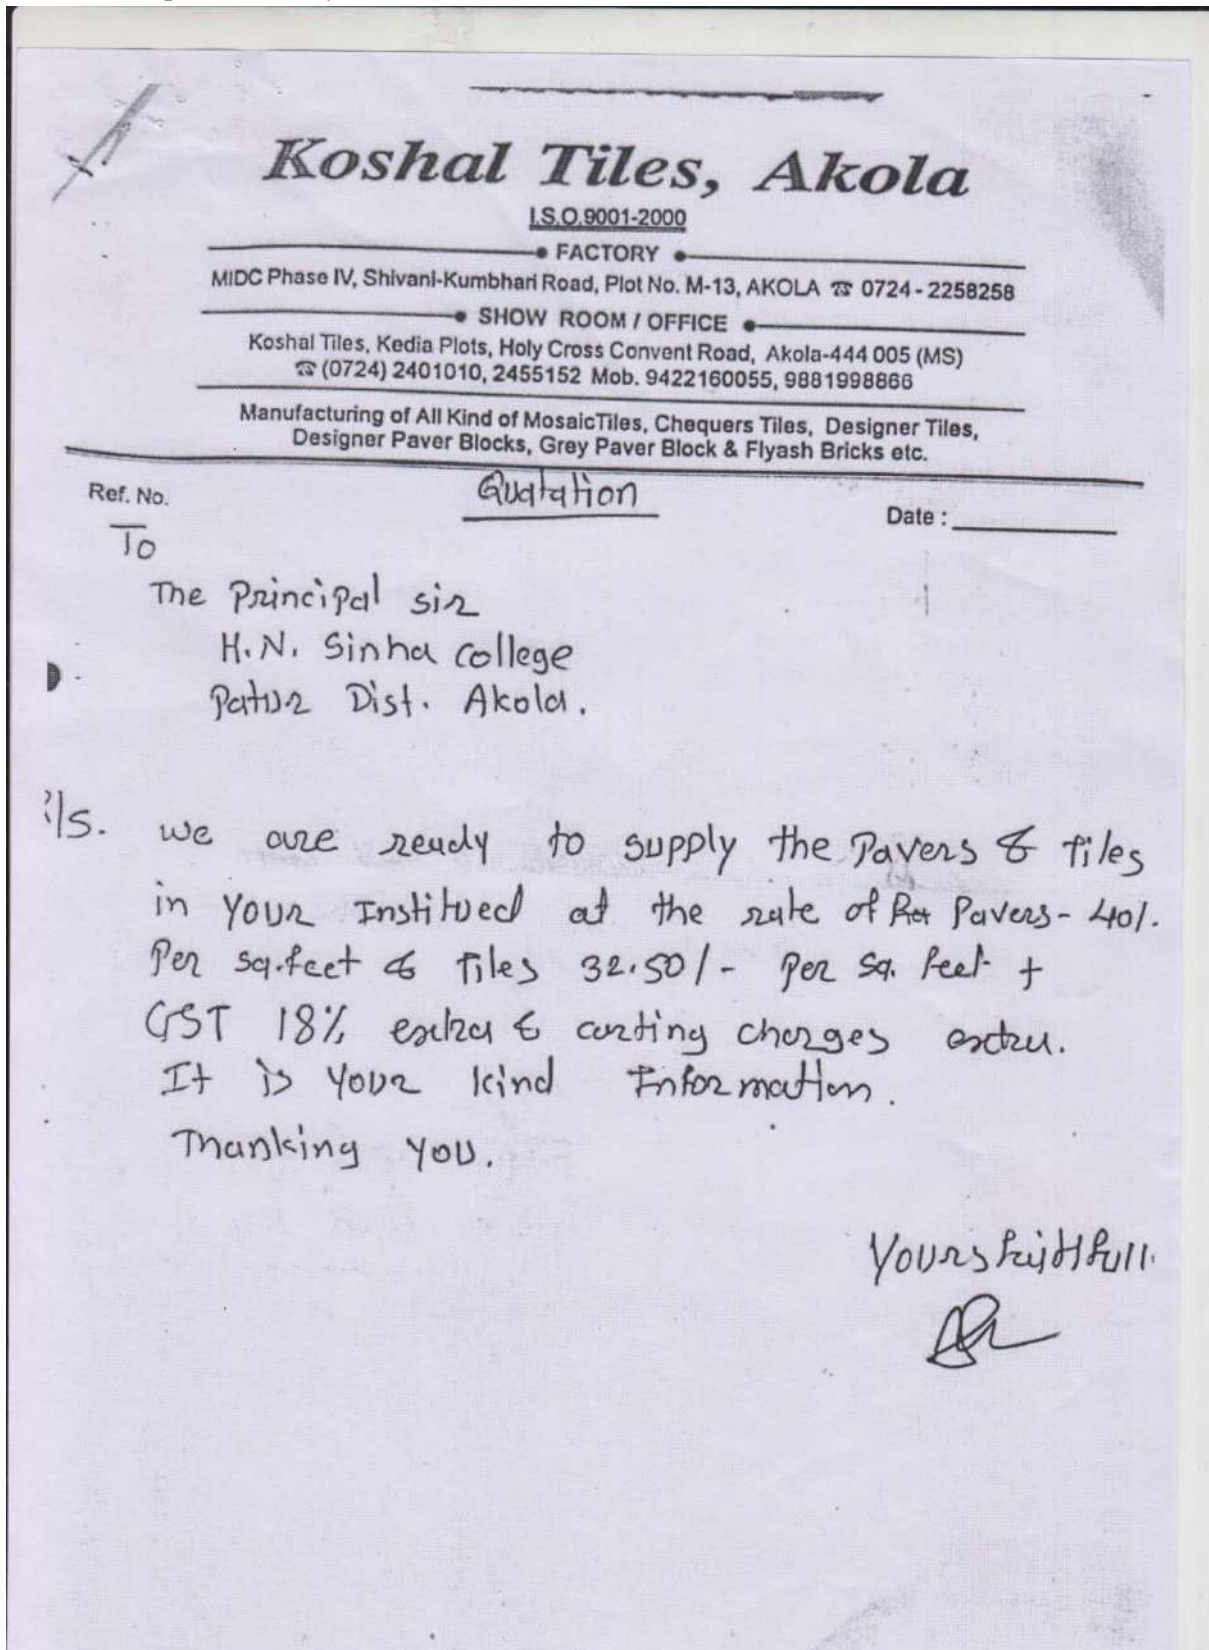 Koshal Tiles, Akola
I.S.O.9001-2000
FACTORY
MIDC Phase IV, Shivani-Kumbhari Road, Plot No. M-13, AKOLA ☎ 0724 - 2258258
SHOW ROOM / OFFICE
Koshal Tiles, Kedia Plots, Holy Cross Convent Road, Akola-444 005 (MS)
☎ (0724) 2401010, 2455152 Mob. 9422160055, 9881998866
Manufacturing of All Kind of MosaicTiles, Chequers Tiles, Designer Tiles,
Designer Paver Blocks, Grey Paver Block & Flyash Bricks etc.
Ref. No.
Quatation
Date :
To
The Principal sir
H.N. Sinha college
Patur Dist. Akola.
/s. we are ready to supply the Pavers & tiles
in your Institued at the rate of Pavers - 40/.
Per sq.feet & Tiles 32.50/- Per Sq. feet +
GST 18% extra & carting charges extra.
It is Your kind Information.
Thanking you.
Yours faithfull.